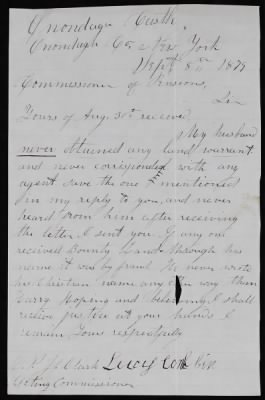 Onondaga Castle
Onondaga Co New York
Sept 8th 1877
Commissioner of Pensions,
Sir
Yours of Aug. 30th received.
My husband
never obtained any land warrant
and never corresponded with any
agent save the one I mentioned
in my reply to you, and never
heard from him after receiving
the letter I sent you. If any one
received Bounty Land through his
name it was by fraud. He never wrote
his Christian name any way than
Harry Hoping and believing I shall
receive justice at your hands I
remain Yours respectfully
Lucy
Clark
Acting Commissioner